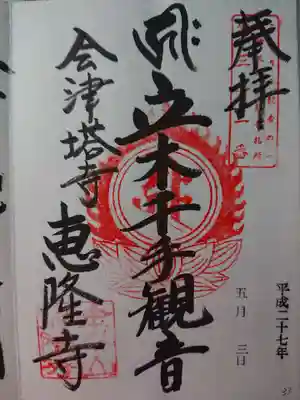 奉拝
平成二十七年
五月 三日
立木千手観音
会津塔寺 恵隆寺